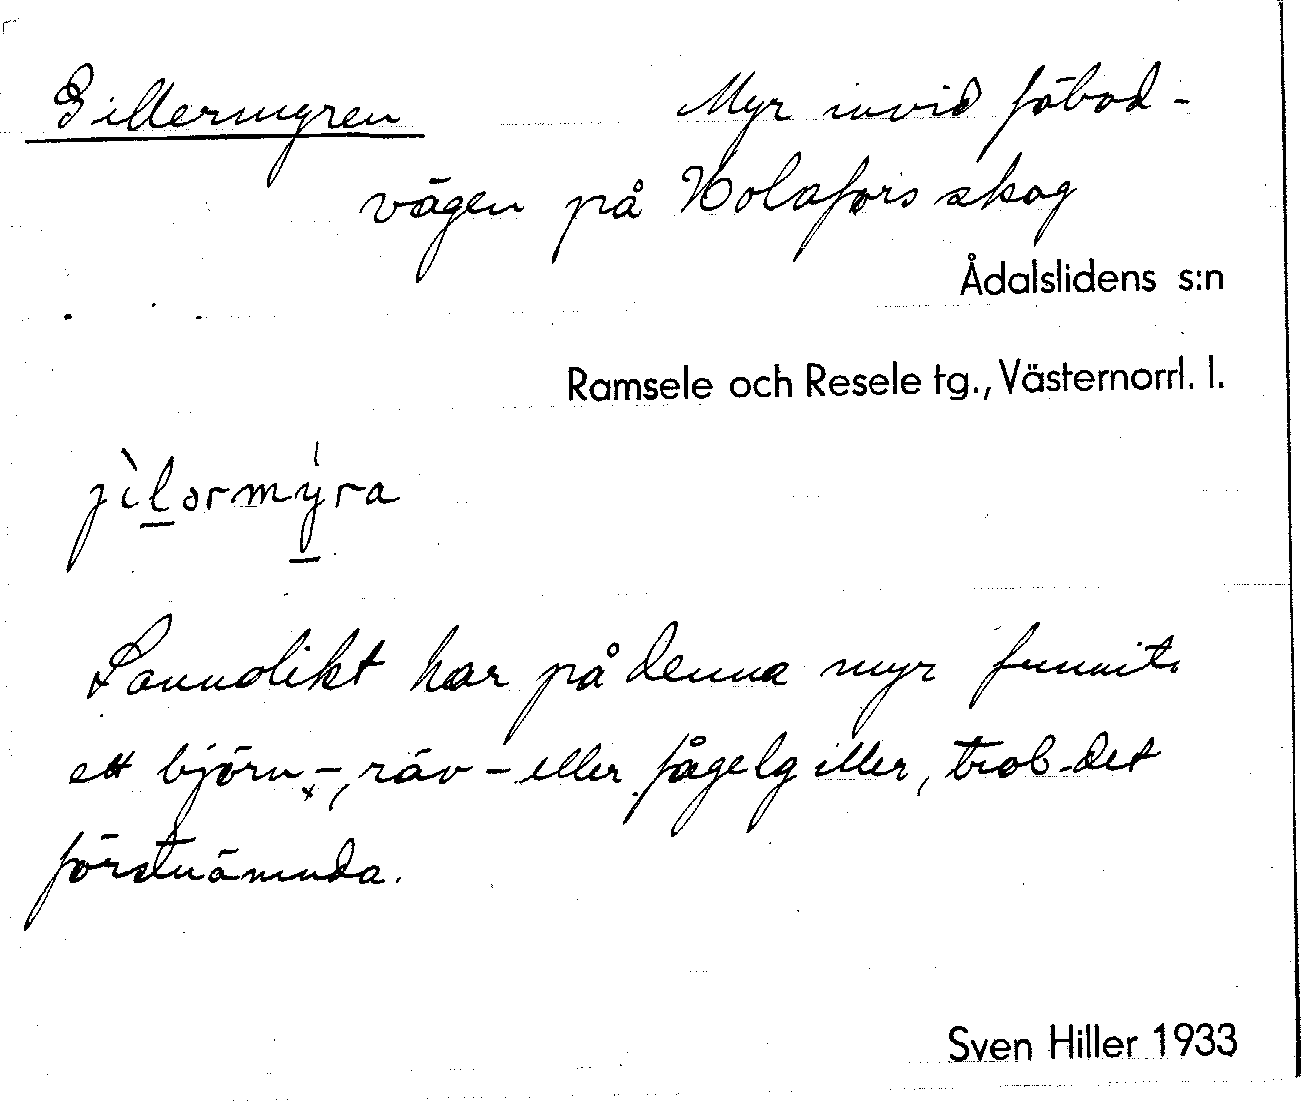 Gillermyren Myr invid fäbod-
vägen på Holafors skog
Ådalslidens s:n
Ramsele och Resele tg., Västernorrl. l.
jìlərmýra
Sannolikt har på denna myr funnits
ett björn-, räv- eller fågelgiller, trol. det
förstnämnda.
Sven Hiller 1933